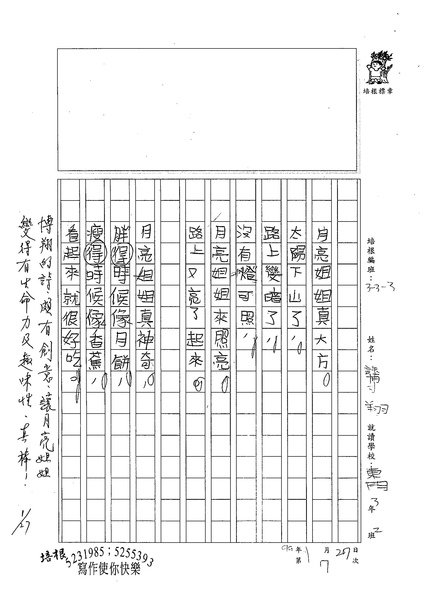 培根標章
培根編班：3-3-3
姓名：
翔
就讀學校：東門 3年 2班
月亮姐姐真大方，
太陽下山了，
路上變暗了，
沒有燈可照，
月亮姐姐來照亮
路上又亮了起來。
月亮姐姐真神奇，
胖得時候像月餅，
瘦得時候像香蕉，
看起來就很好吃。
博翔的詩頗有創意，讓月亮姐姐
變得有生命力及趣味性，真棒！
1/27
年 1 月 27 日
第 7 次
培根 5231985；5255393
寫作使你快樂